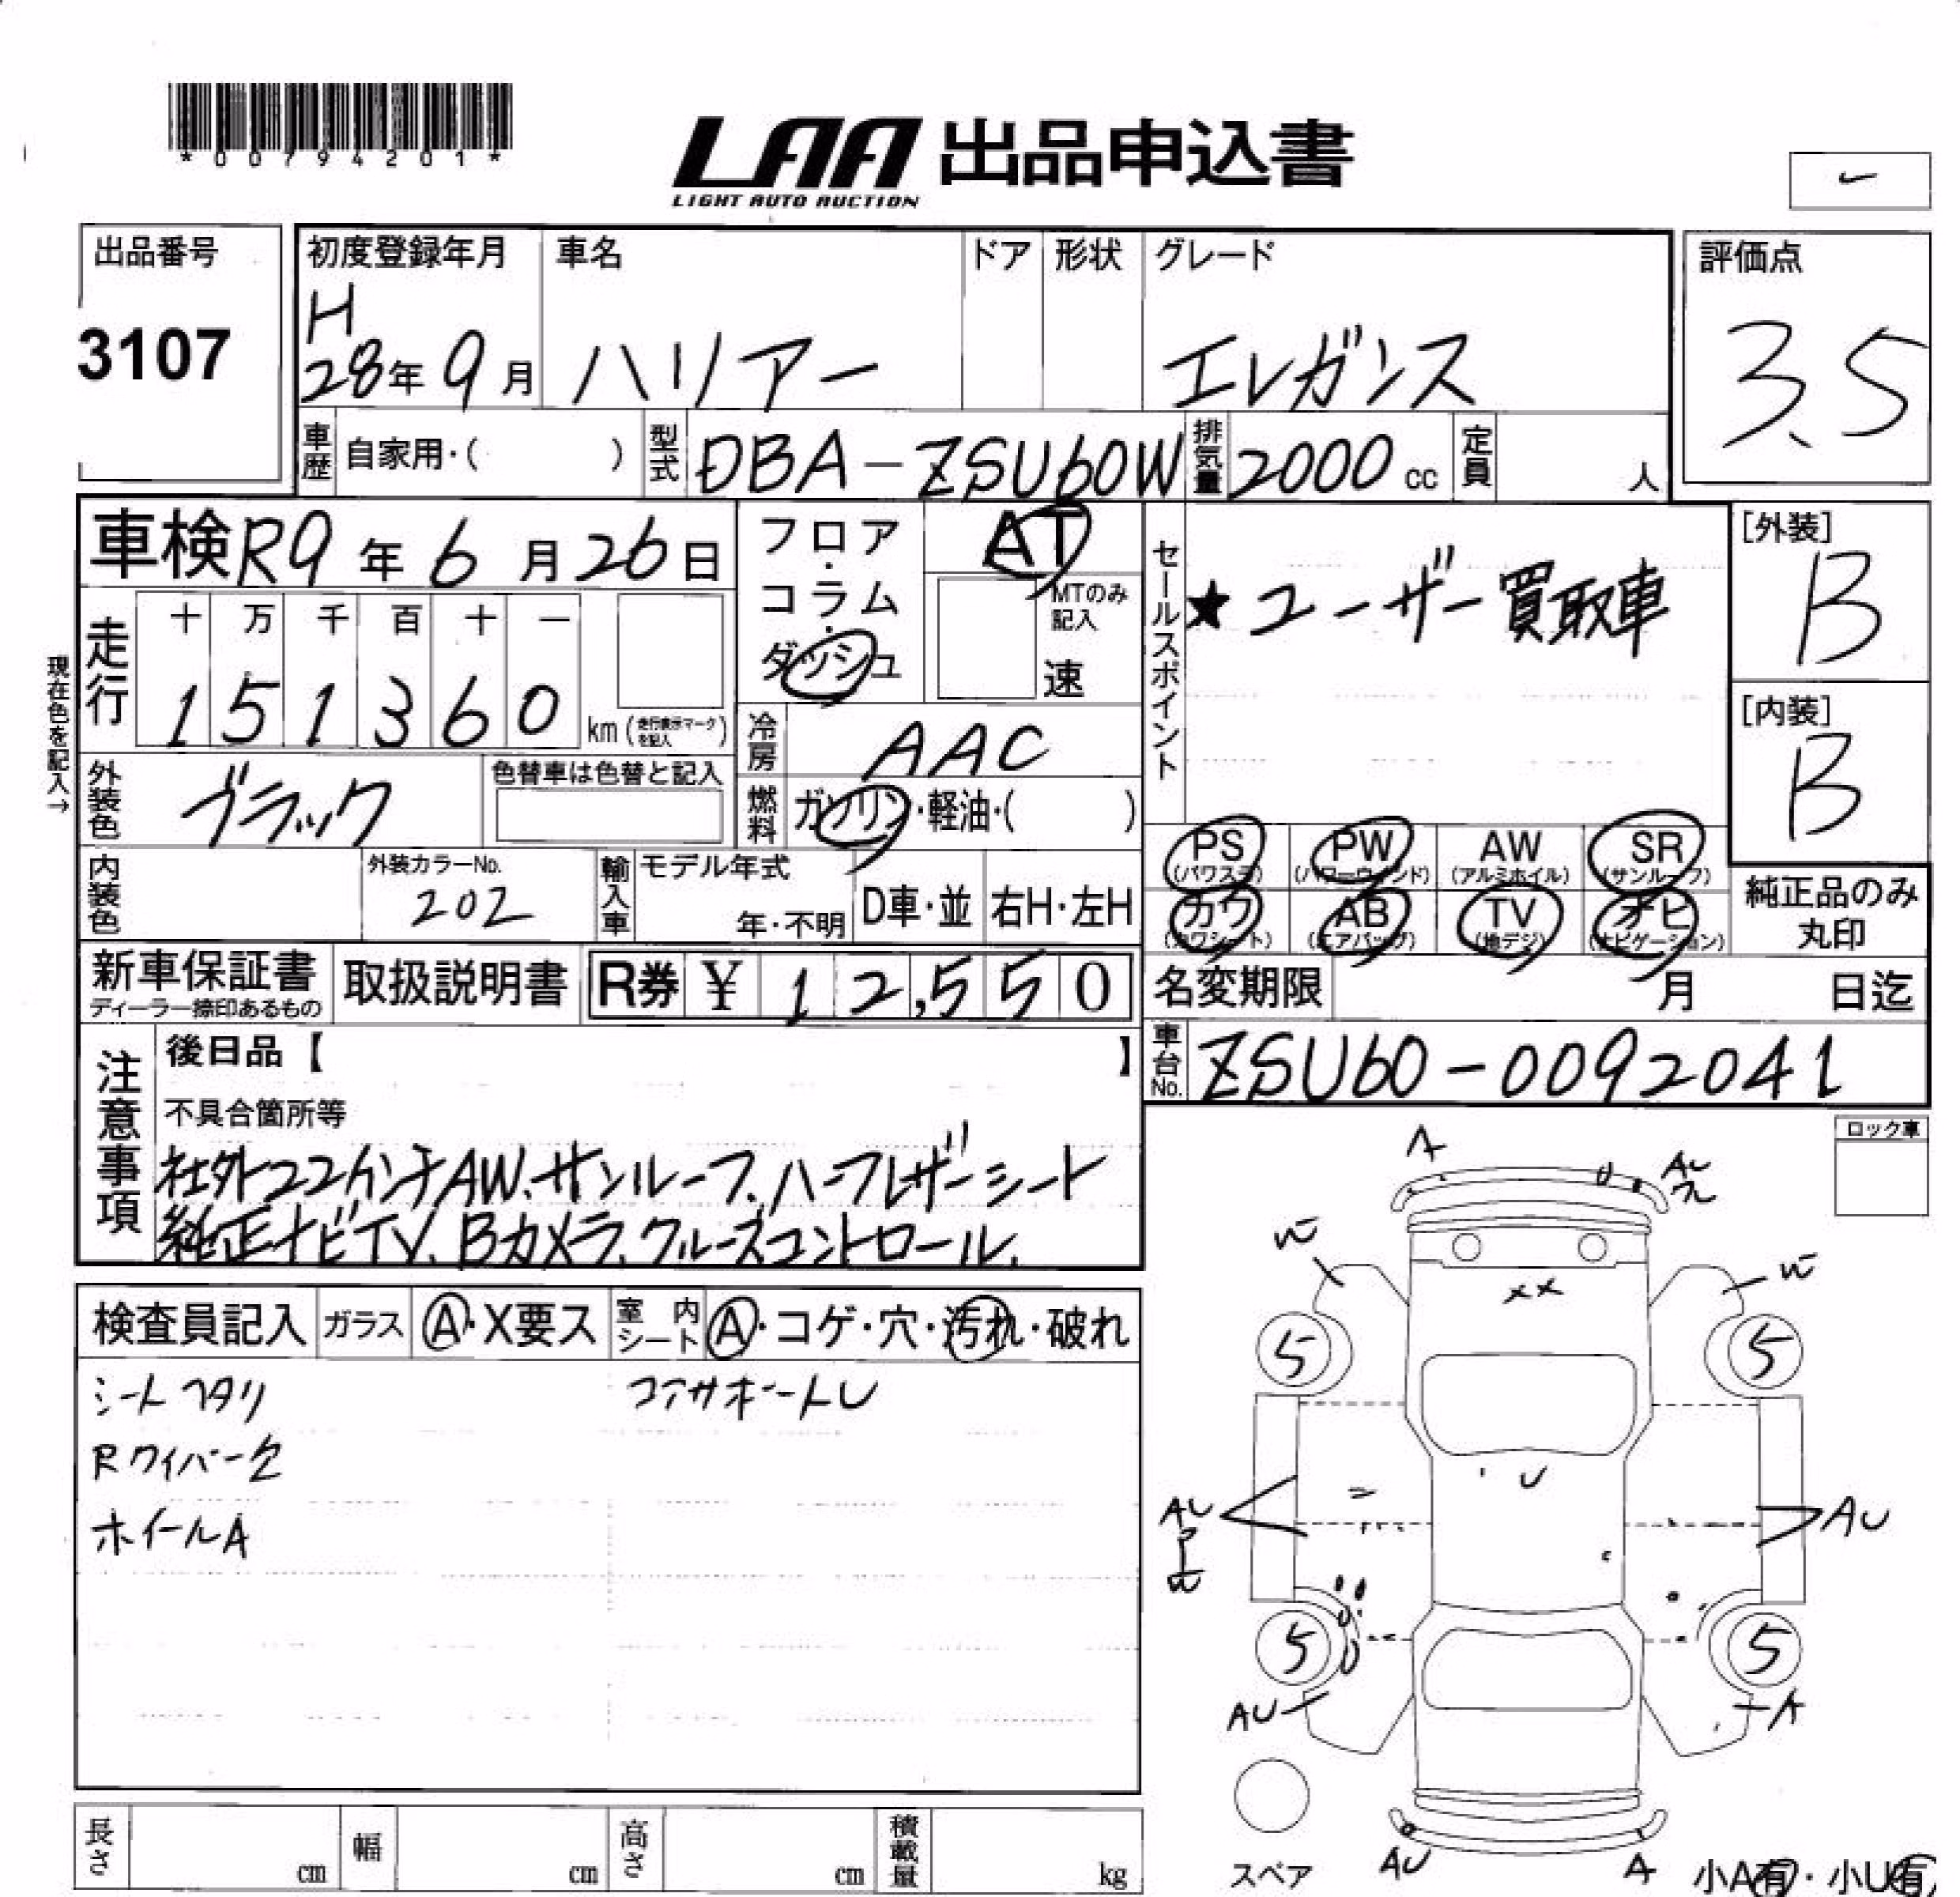 *00794201*
LAA 出品申込書
LIGHT AUTO AUCTION
出品番号
3107
初度登録年月
H
28年 9月
車名
ハリアー
ドア
形状
グレード
エレガンス
評価点
3.5
車歴
自家用・( )
型式
DBA-ZSU60W
排気量
2000 cc
定員
人
車検 R9年 6月 26日
フロア・コラム・ダッシュ
AT
MTのみ記入
速
セールスポイント
★ユーザー買取車
[外装]
B
[内装]
B
現在色を記入→
走行
十 万 千 百 十 一
1 5 1 3 6 0 km (走行表示マークを記入)
冷房
AAC
外装色
ブラック
色替車は色替と記入
燃料
ガソリン・軽油・( )
内装色
外装カラーNo.
202
輸入車
モデル年式
年・不明
D車・並
右H・左H
PS (パワステ)
PW (パワーウィンド)
AW (アルミホイル)
SR (サンルーフ)
カワ (カワシート)
AB (エアバッグ)
TV (地デジ)
ナビ (ナビゲーション)
純正品のみ丸印
新車保証書
ディーラー捺印あるもの
取扱説明書
R券 ¥ 12,550
名変期限
月 日迄
車台No.
ZSU60-0092041
注意事項
後日品【 】
不具合箇所等
社外22インチAW、サンルーフ、ハーフレザーシート
純正ナビTV、Bカメラ、クルーズコントロール、
ロック車
検査員記入
ガラス
A・X要ス
室内シート
A・コゲ・穴・汚れ・破れ
シートヘタリ
コアサポートU
Rワイパー欠
ホイールA
A
AU
W
W
XX
5
5
U
AU
P
W
AU
5
5
AU
A
スペア
AU
A
小A有・小U有
長さ cm
幅 cm
高さ cm
積載量 kg